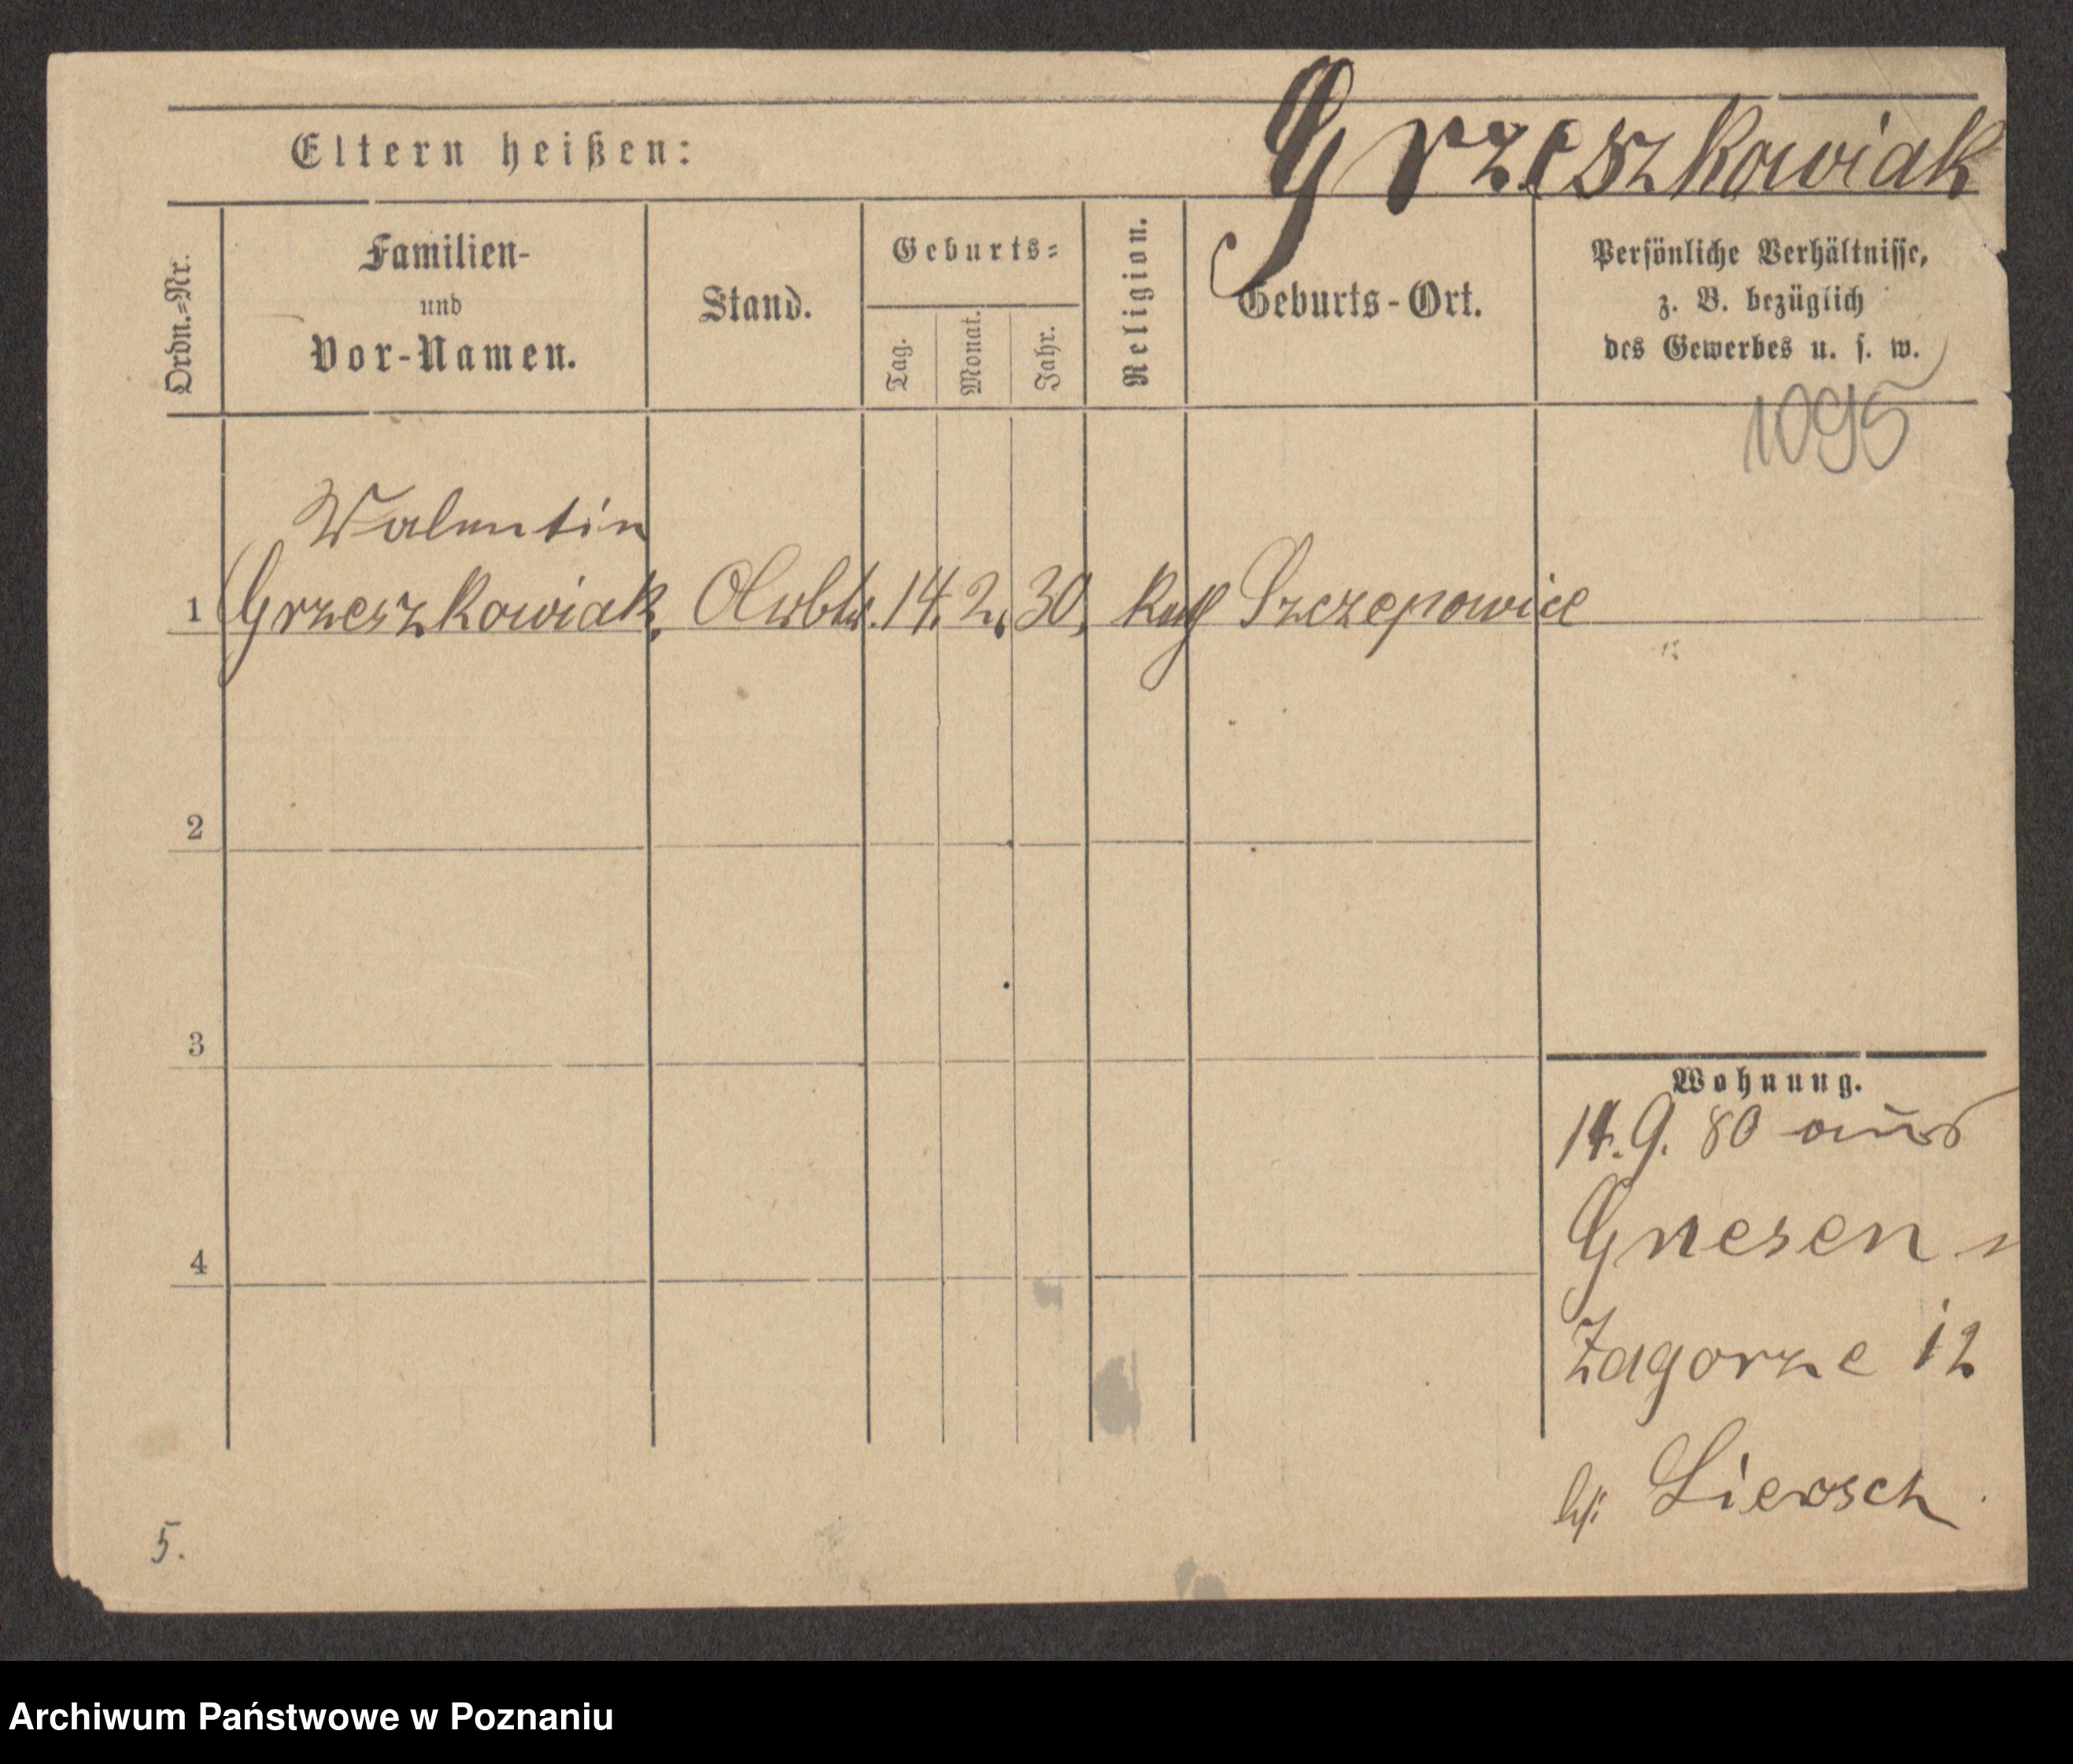 Grzeszkowiak
Eltern heißen:
Ordn.=Nr.
Familien-
und
Vor-Namen.
Stand.
Geburts=
Tag.
Monat.
Jahr.
Religion.
Geburts-Ort.
Persönliche Verhältnisse,
z. B. bezüglich
des Gewerbes u. s. w.
1095
Valentin
1 Grzeszkowiak, 14. 2. 30, Kath Szczepowice
2
3
4
Wohnung.
14. 9. 80 aus
Gnesen
Zagorze 12
bei Liersch
5.
Archiwum Państwowe w Poznaniu